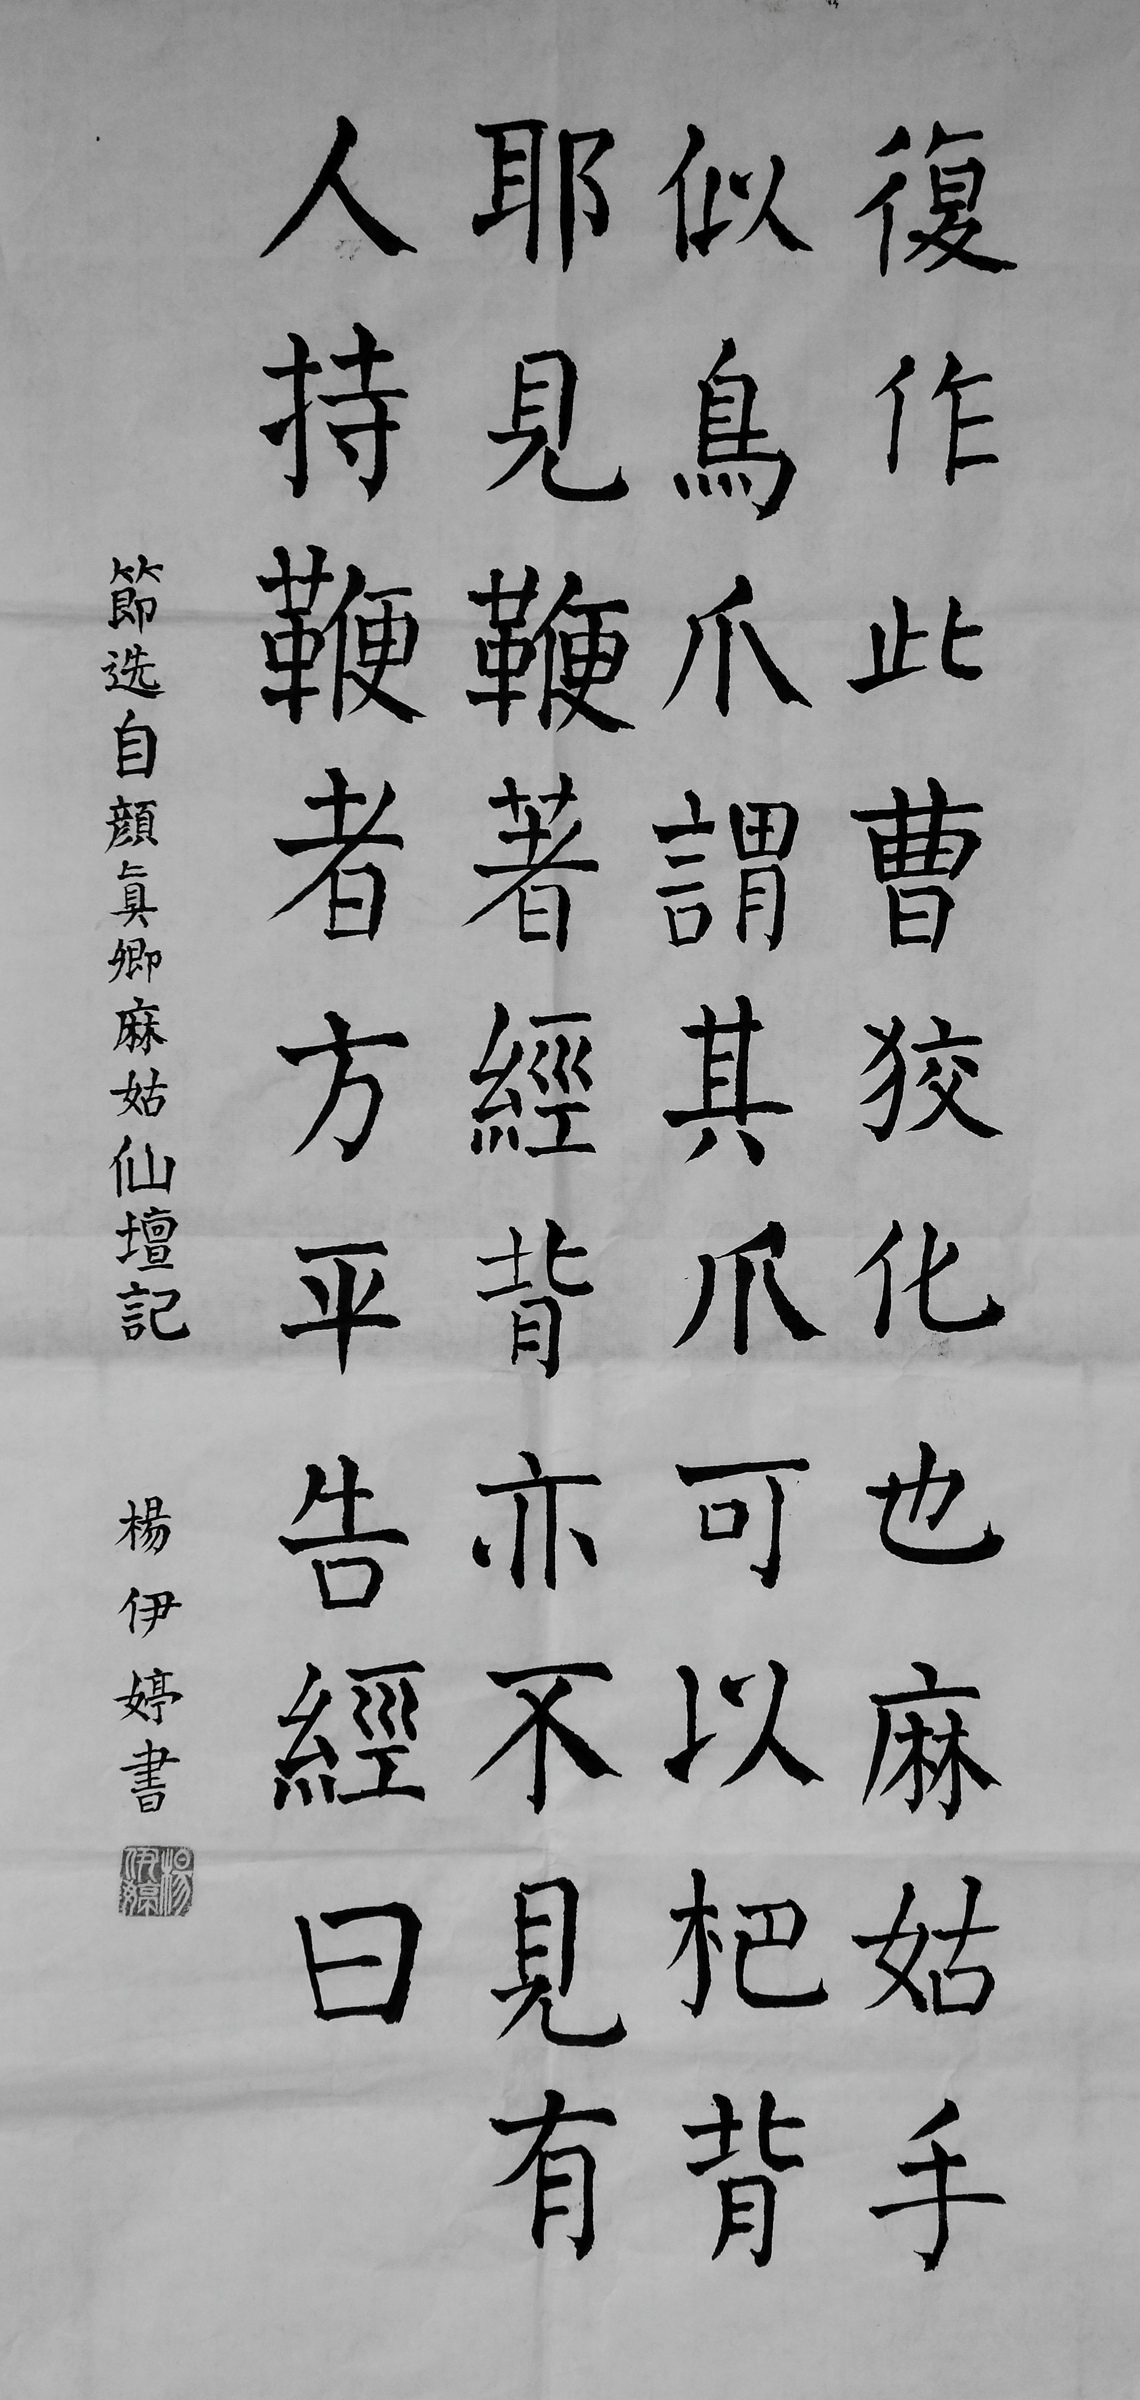 復作此曹狡化也麻姑手
似鳥爪謂其爪可以杷背
耶見鞭著經背亦不見有
人持鞭者方平告經曰
節选自顏真卿麻姑仙壇記
楊伊婷書
楊伊婷